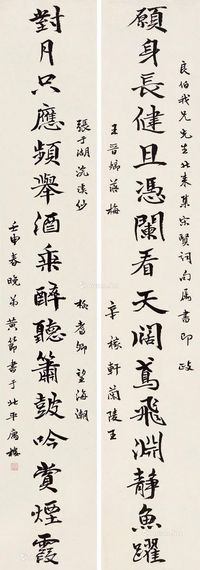 良伯我兄先生北来集宋賢詞句属書即政
願身長健且憑闌看天闊鳶飛淵静魚躍
王晉卿落梅
辛稼軒蘭陵王
張于湖浣溪紗
柳耆卿望海潮
對月只應頻舉酒乘醉聽簫鼓吟賞煙霞
壬申春晚弟黄節書于北平寓樓